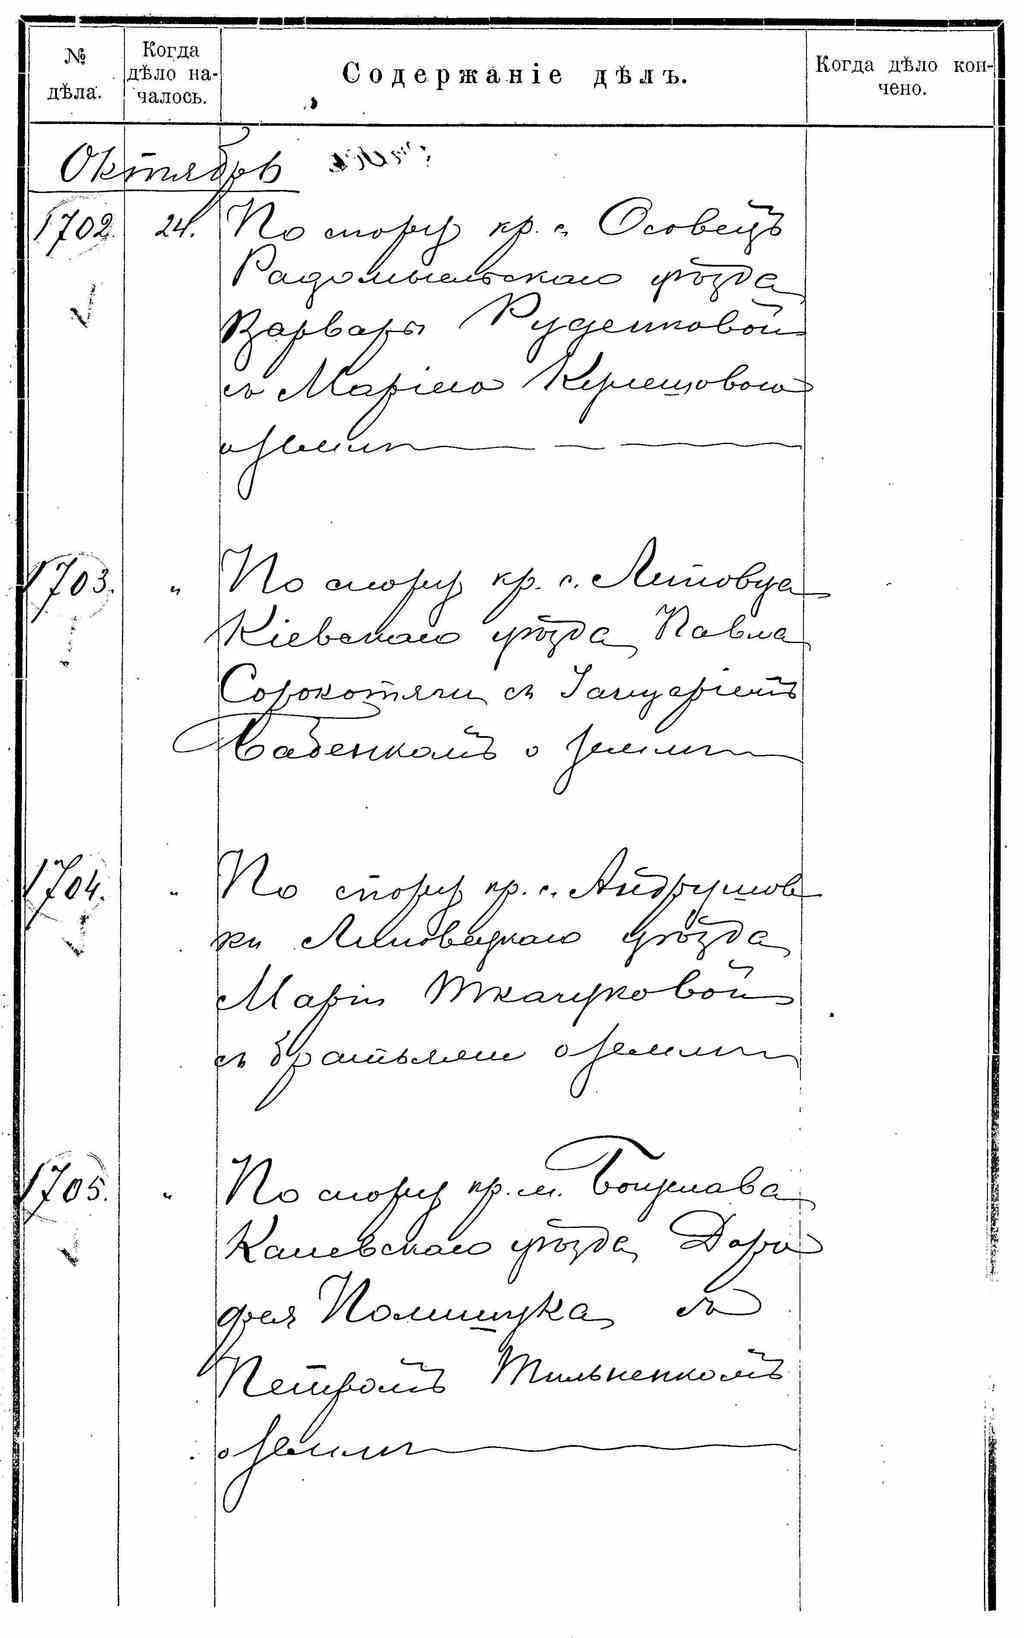 № дѣла.
Когда дѣло на-чалось.
Содержаніе дѣлъ.
Когда дѣло кон-чено.
Октябрь
1702. 24. По спору кр. с. Осовецъ
Радомысльскаго уѣзда
Варвары Руденковой
съ Маріею Кулешовою
о землѣ
1703. " По спору кр. с. Литовца
Кіевскаго уѣзда Павла
Сорокотяги съ Іануаріемъ
Бабенкомъ о землѣ
1704. " По спору кр. с. Андрушов
ки Липовецкаго уѣзда
Маріи Ткачуковой
съ братьями о землѣ
1705. " По спору кр. м. Богуслава
Каневскаго уѣзда Доро
фея Полишука съ
Петромъ Тильненкомъ
о землѣ